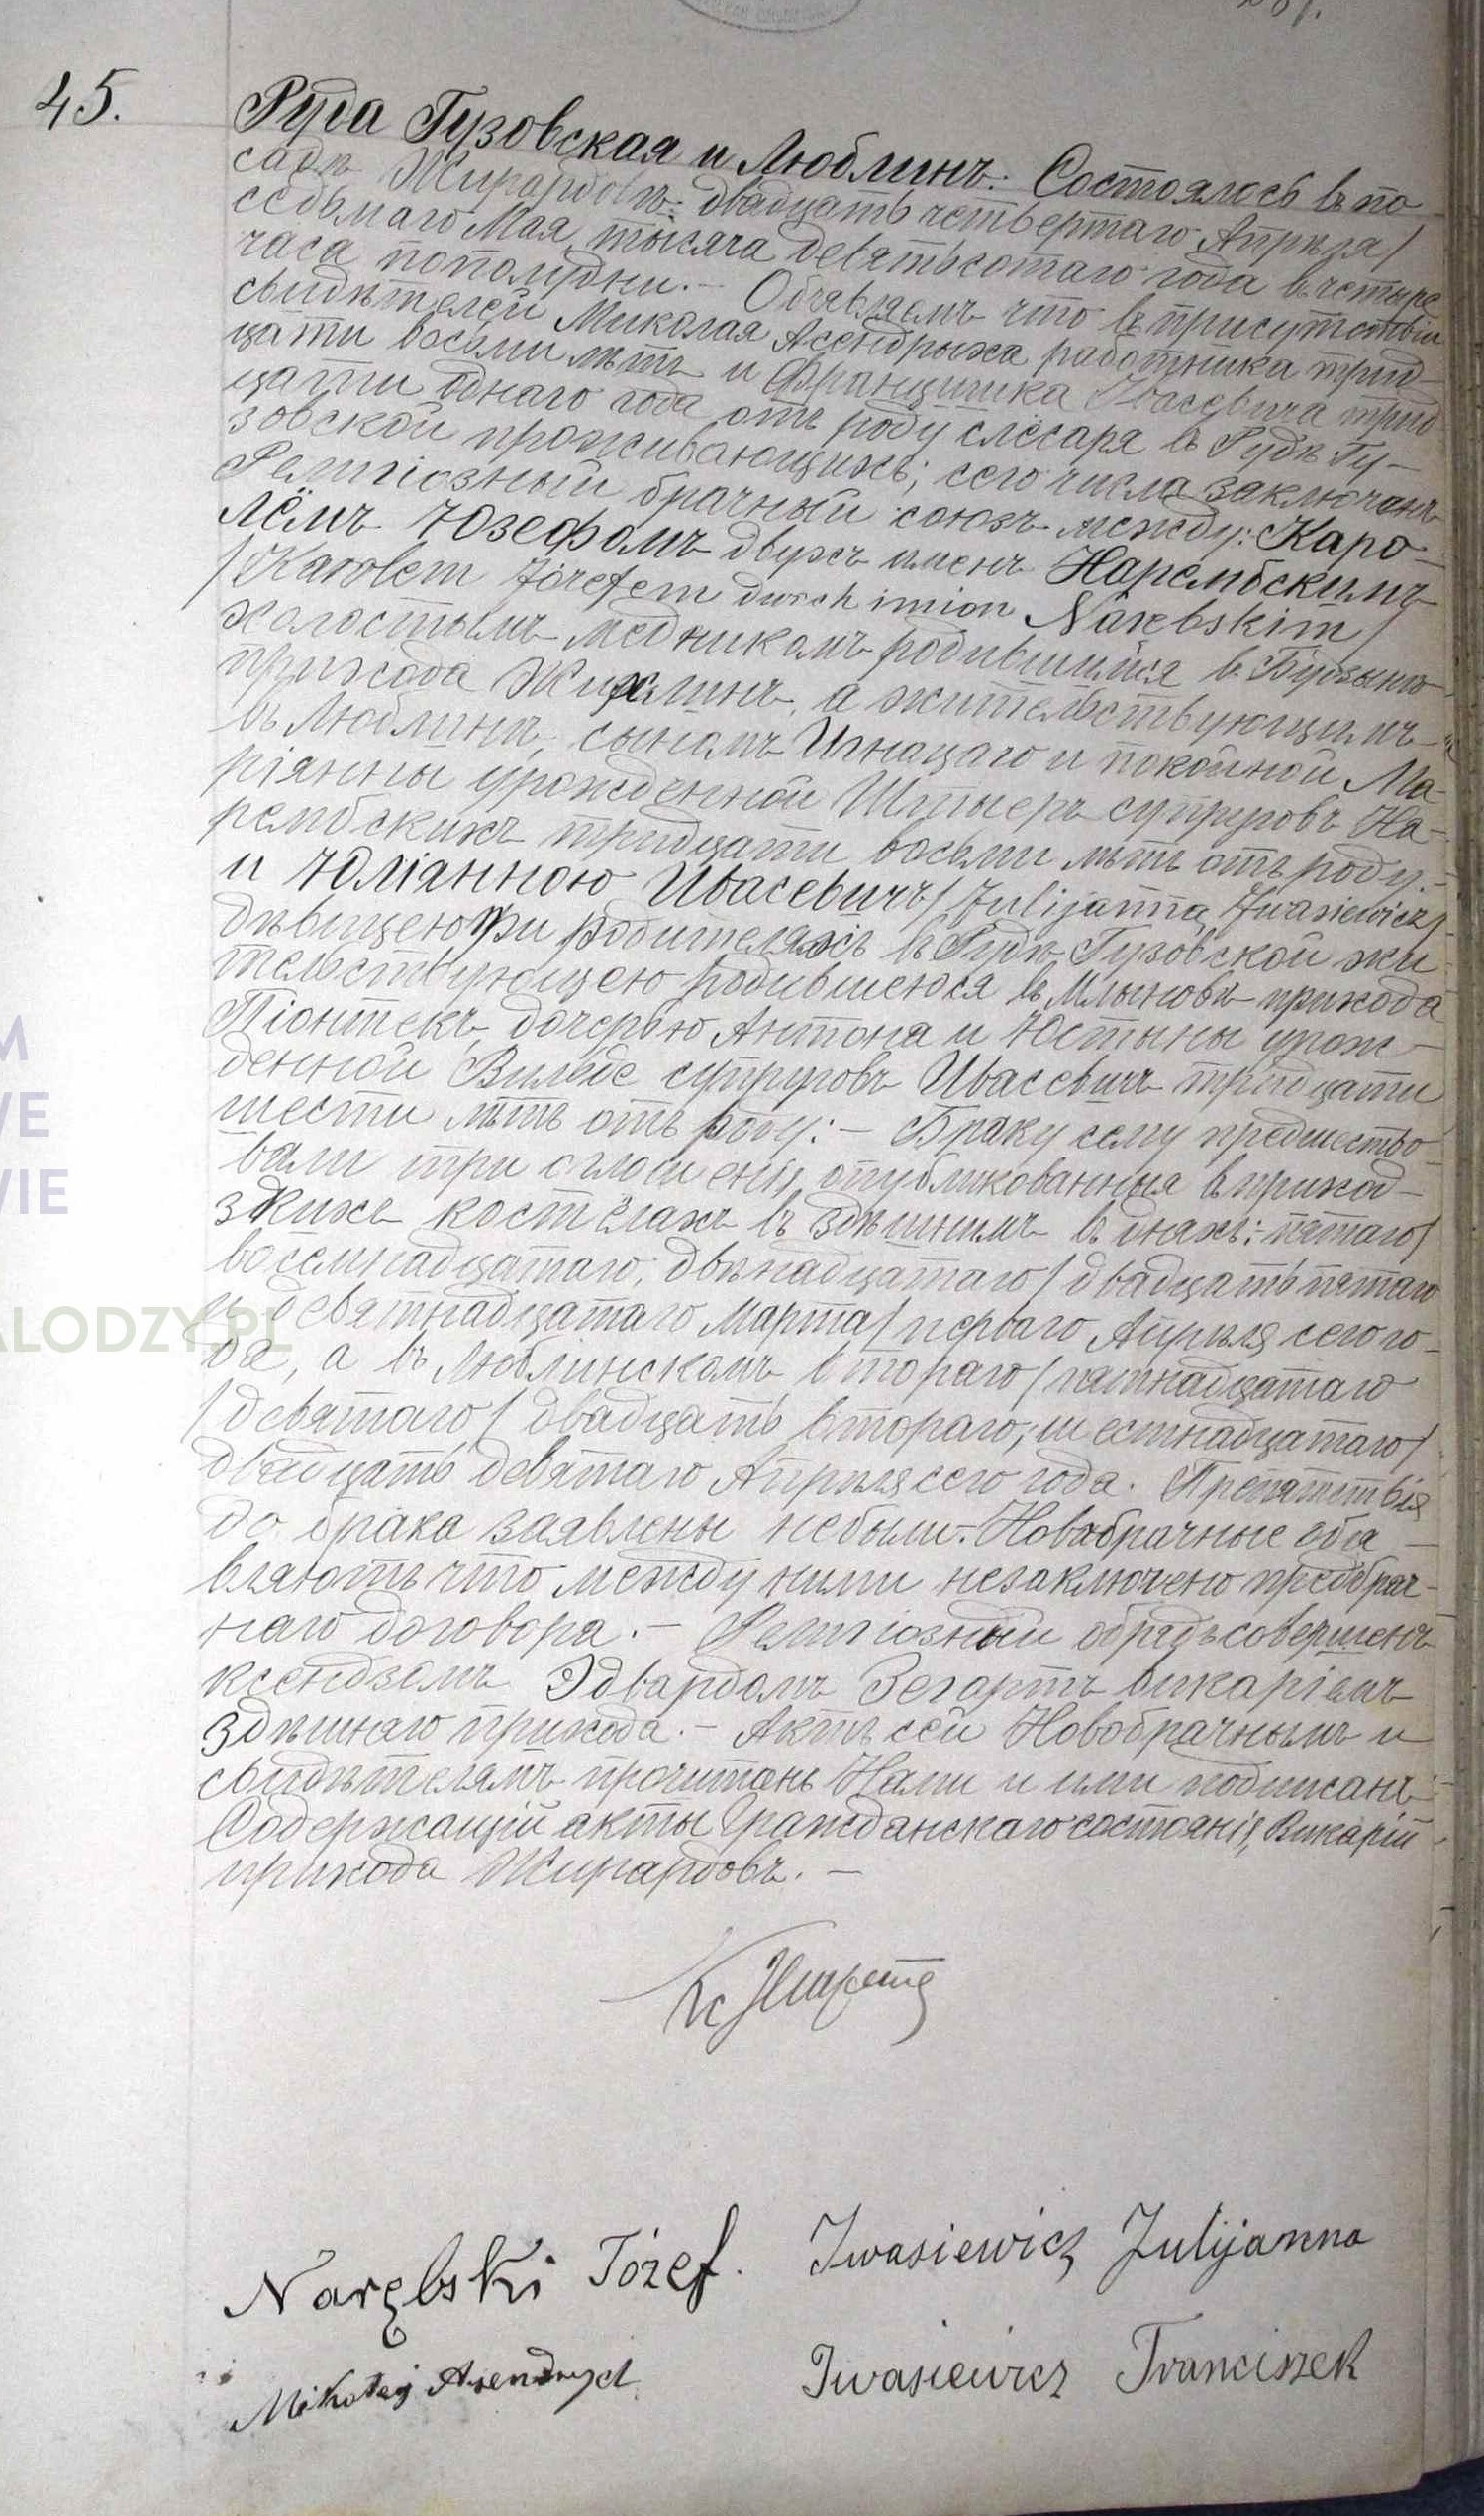 45.
Руда Гузовская и Люблинъ: Состоялось въ по
садѣ Жирардовъ: двадцать четвертаго Апрѣля /
седьмаго Мая, тысяча девятьсотаго года въ четыре
часа пополудни. – Объявляемъ что въ присутствіи
свидѣтелей Миколая Асендрыха работника трид-
цати восьми лѣтъ и Францишка Ивасевича трид-
цати однаго года отъ роду слесаря въ Рудѣ Гу-
зовской проживающихъ; сего числа заключенъ
Религіозный брачный союзъ между: Каро-
лёмъ Юзефомъ двухъ именъ Нарембскимъ
/Karolem Józefem dwoch imion Narebskim/
холостымъ медникомъ родившийся въ
прихода а жительствующимъ
въ Люблинѣ, сыномъ Игнацаго и покойной Ма-
ріянны урожденной супруговъ На-
рембскихъ тридцати восьми лѣтъ отъ роду. –
и Юліанною Ивасевичъ / Julijanną Iwasiewicz/
дѣвицею при родителяхъ въ Рудѣ Гузовской жи-
тельствующею родившеюся въ Млыновѣ прихода
Піонтекъ, дочерью Антона и Юстыны урож-
денной Вильде супруговъ Ивасевичъ тридцати
шести лѣтъ отъ роду: – Браку сему предшество-
вали три оглошенія, опубликованныя въ приход-
зкихъ костёлахъ въ здѣшнимъ въ дняхъ: пятаго/
восемнадцатаго, двѣнадцатаго / двадцать пятаго
и девятнадцатаго Марта / перваго Апрѣля сего го-
да, а въ Люблинскомъ втораго / пятнадцатаго
/девятаго/ двадцать втораго, шестнадцатаго/
двадцать девятаго Апрѣля сего года. Препятствія
до брака заявлены небыли. Новобрачные объя-
вляютъ что между ними незаключено предбрач-
наго договора. – Религіозный обрядъ совершенъ
ксендзомъ Эдвардомъ викаріемъ
здѣшнаго прихода. – Актъ сей Новобрачнымъ и
свидѣтелямъ прочитанъ Нами и ими подписанъ
Содержащій акты Гражданскаго состоянія, Викарій
прихода Жирардовъ. –
Narębski Józef. Iwasiewicz Julijanna
Mikołaj Asendrych Iwasiewicz Franciszek